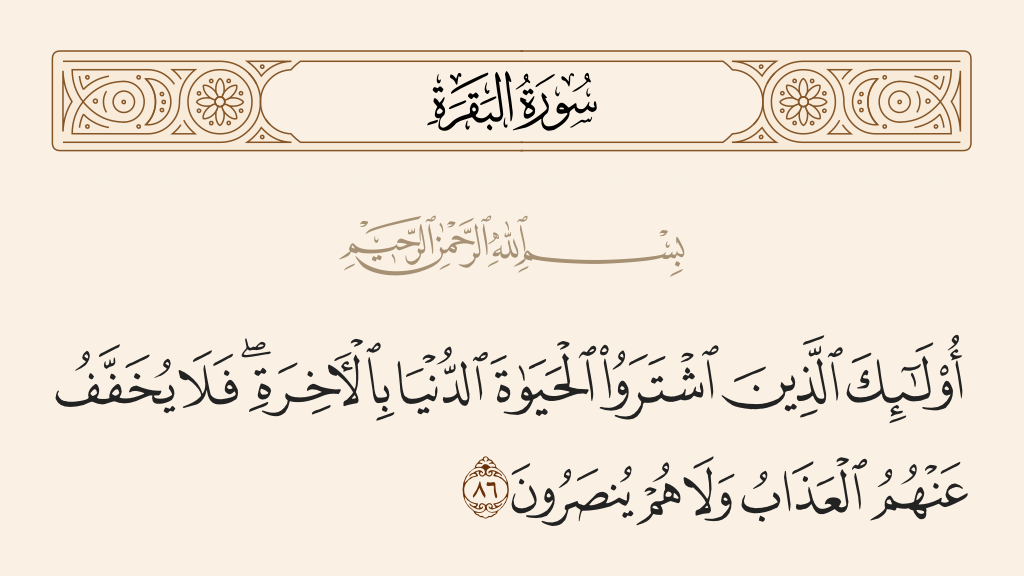 سُورَةُ البَقَرَةِ
بِسْمِ ٱللَّهِ ٱلرَّحْمَٰنِ ٱلرَّحِيمِ
أُو۟لَـٰٓئِكَ ٱلَّذِينَ ٱشْتَرَوُا۟ ٱلْحَيَوٰةَ ٱلدُّنْيَا بِٱلْـَٔاخِرَةِ ۖ فَلَا يُخَفَّفُ
عَنْهُمُ ٱلْعَذَابُ وَلَا هُمْ يُنصَرُونَ ٨٦